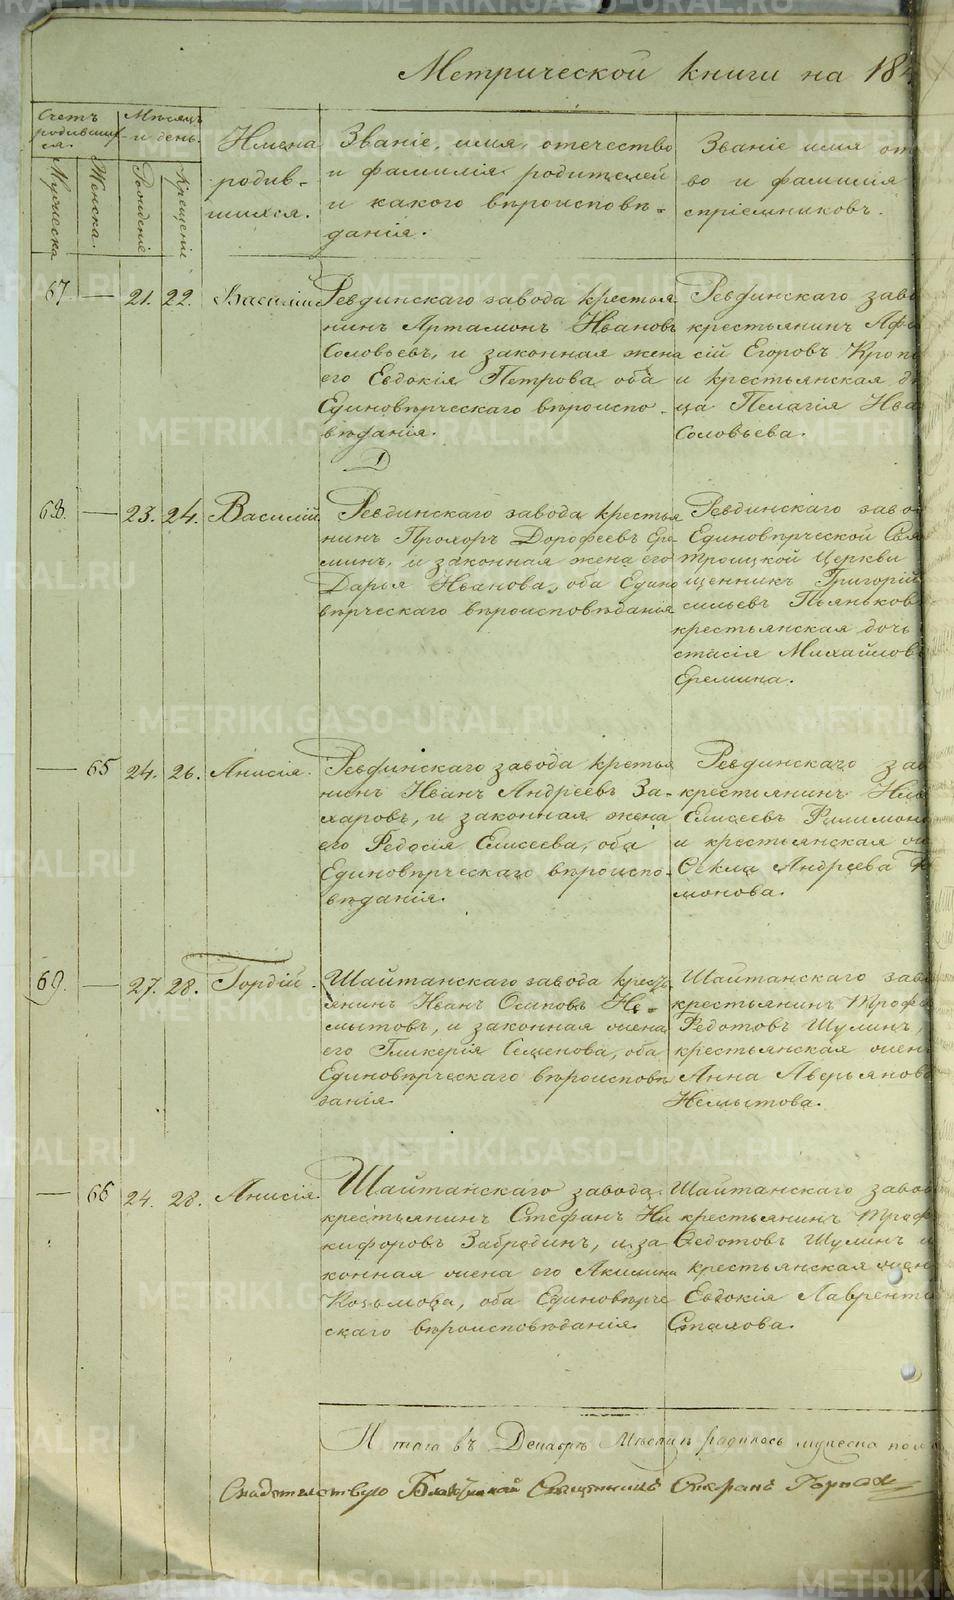 Метрической книги на 184
Счетъ родившихся.
Мѣсяцъ и день.
Мужеска
Женска.
Рожденіе
Крещеніе
Имена родив-
шихся.
Званіе, имя, отечество
и фамилія родителей
и какого вѣроисповѣ-
данія.
Званіе имя от
во и фамилія
спріемниковъ.
67 — 21. 22. Василій
Ревдинскаго завода крестья
нинъ Артамонъ Ивановъ
Соловьевъ, и законная жена
его Евдокія Петрова, оба
Единовѣрческаго вѣроиспо-
вѣданія.
Ревдинскаго заво
крестьянинъ Афо
сій Егоровъ Кроп
и крестьянская дѣ
ца Пелагія Ива
Соловьева.
68. — 23. 24. Василій
Ревдинскаго завода крестья
нинъ Прохоръ Дорофеевъ Ере-
минъ, и законная жена его
Дарья Иванова, оба Едино
вѣрческаго вѣроисповѣданія
Ревдинскаго заво
Единовѣрческой Свя
троицкой Церкви
щенникъ Григорій
сильевъ Пьянков
крестьянская дочь
стасія Михайлов
Еремина.
— 65 24. 26. Анисія.
Ревдинскаго завода кретья
нинъ Иванъ Андреевъ За-
харовъ, и законная жена
его Федосія Елисеева, оба
Единовѣрческаго вѣроиспо-
вѣданія.
Ревдинскаго зав
крестьянинъ
Елисеевъ Филимон
и крестьянская
Ѳекла Андреева
монова.
69. — 27. 28. Гордій.
Шайтанскаго завода крест
янинъ Иванъ Осиповъ Не-
мытовъ, и законная жена
его Гликерія Семенова, оба
Единовѣрческаго вѣроисповѣ
данія.
Шайтанскаго зав
крестьянинъ Троф
Федотовъ Шулинъ,
крестьянская жен
Анна Аверьянов
Немытова.
— 66 24. 28. Анисія.
Шайтанскаго завода
крестьянинъ Стефанъ Ни
кифоровъ Забродинъ, и за
конная жена его Акилина
Козьмова, оба Единовѣрче
скаго вѣроисповѣданія.
Шайтанскаго завод
крестьянинъ Троф
Ѳедотовъ Шулинъ и
крестьянская жен
Евдокія Лаврент
Стахова.
Итого въ Декабрѣ Мѣсяцѣ родилось мужеска пол
Свидетельствую Священникъ
METRIKI.GASO-URAL.RU